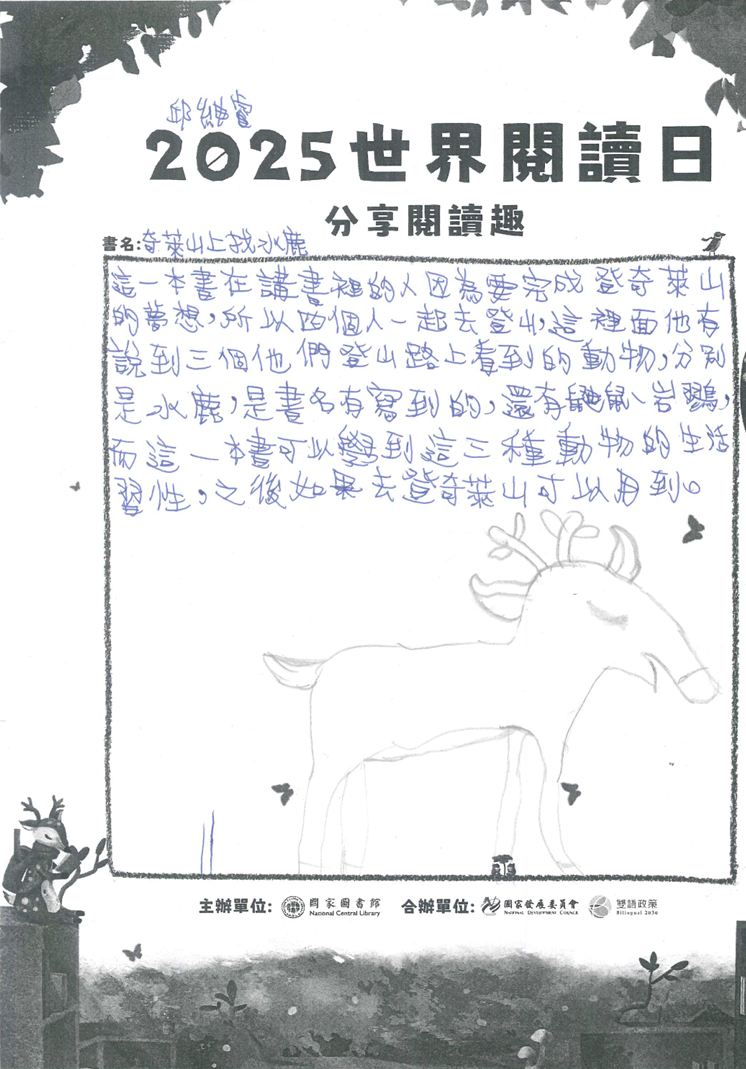 邱繼睿
2025世界閱讀日
分享閱讀趣
書名:奇萊山上找水鹿
這一本書在講書裡的人因為要完成登奇萊山
的夢想,所以四個人一起去登山,這裡面他有
說到三個他們登山路上看到的動物,分別
是水鹿,是書名有寫到的,還有鼬鼠、岩鷚,
而這一本書可以學到這三種動物的生活
習性,之後如果去登奇萊山可以用到。
主辦單位: 國家圖書館 合辦單位: 國家發展委員會 雙語政策
National Central Library NATIONAL DEVELOPMENT COUNCIL Bilingual 2030